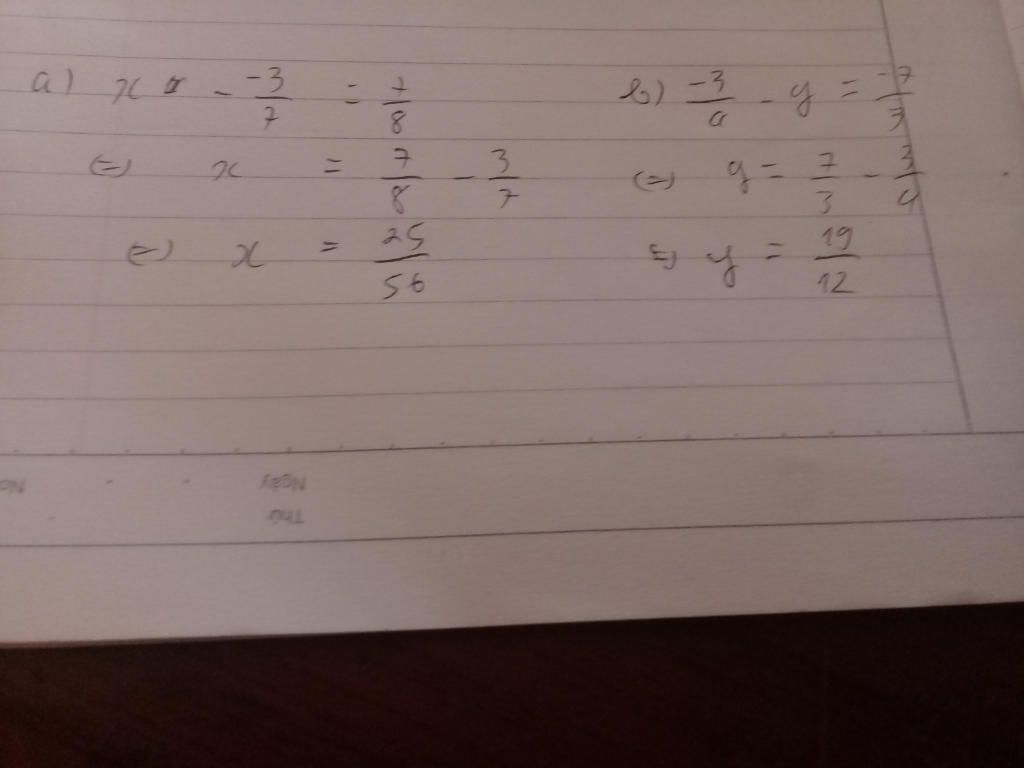 a) x - -3/7 = 7/8
(=) x = 7/8 - 3/7
(=) x = 25/56
b) -3/4 - y = -7/3
(=) y = 7/3 - 3/4
(=) y = 19/12
Ngày
Thứ
No